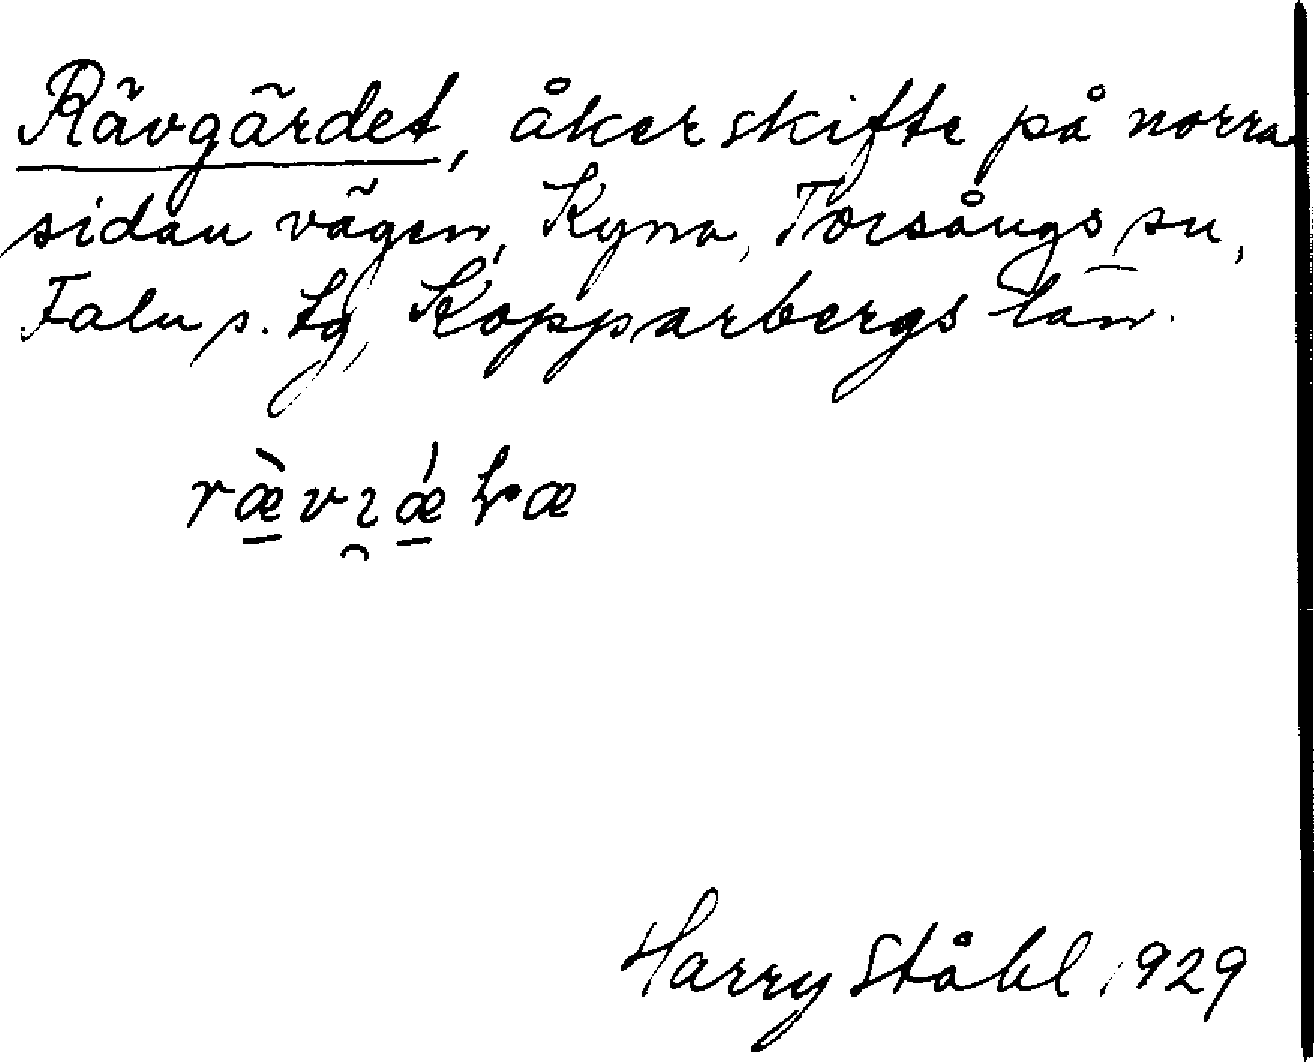 Rävgärdet, åkerskifte på norra
sidan vägen, Kyna, Torsångs sn,
Falu s. tg, Kopparbergs län.
Harry Ståhl 1929